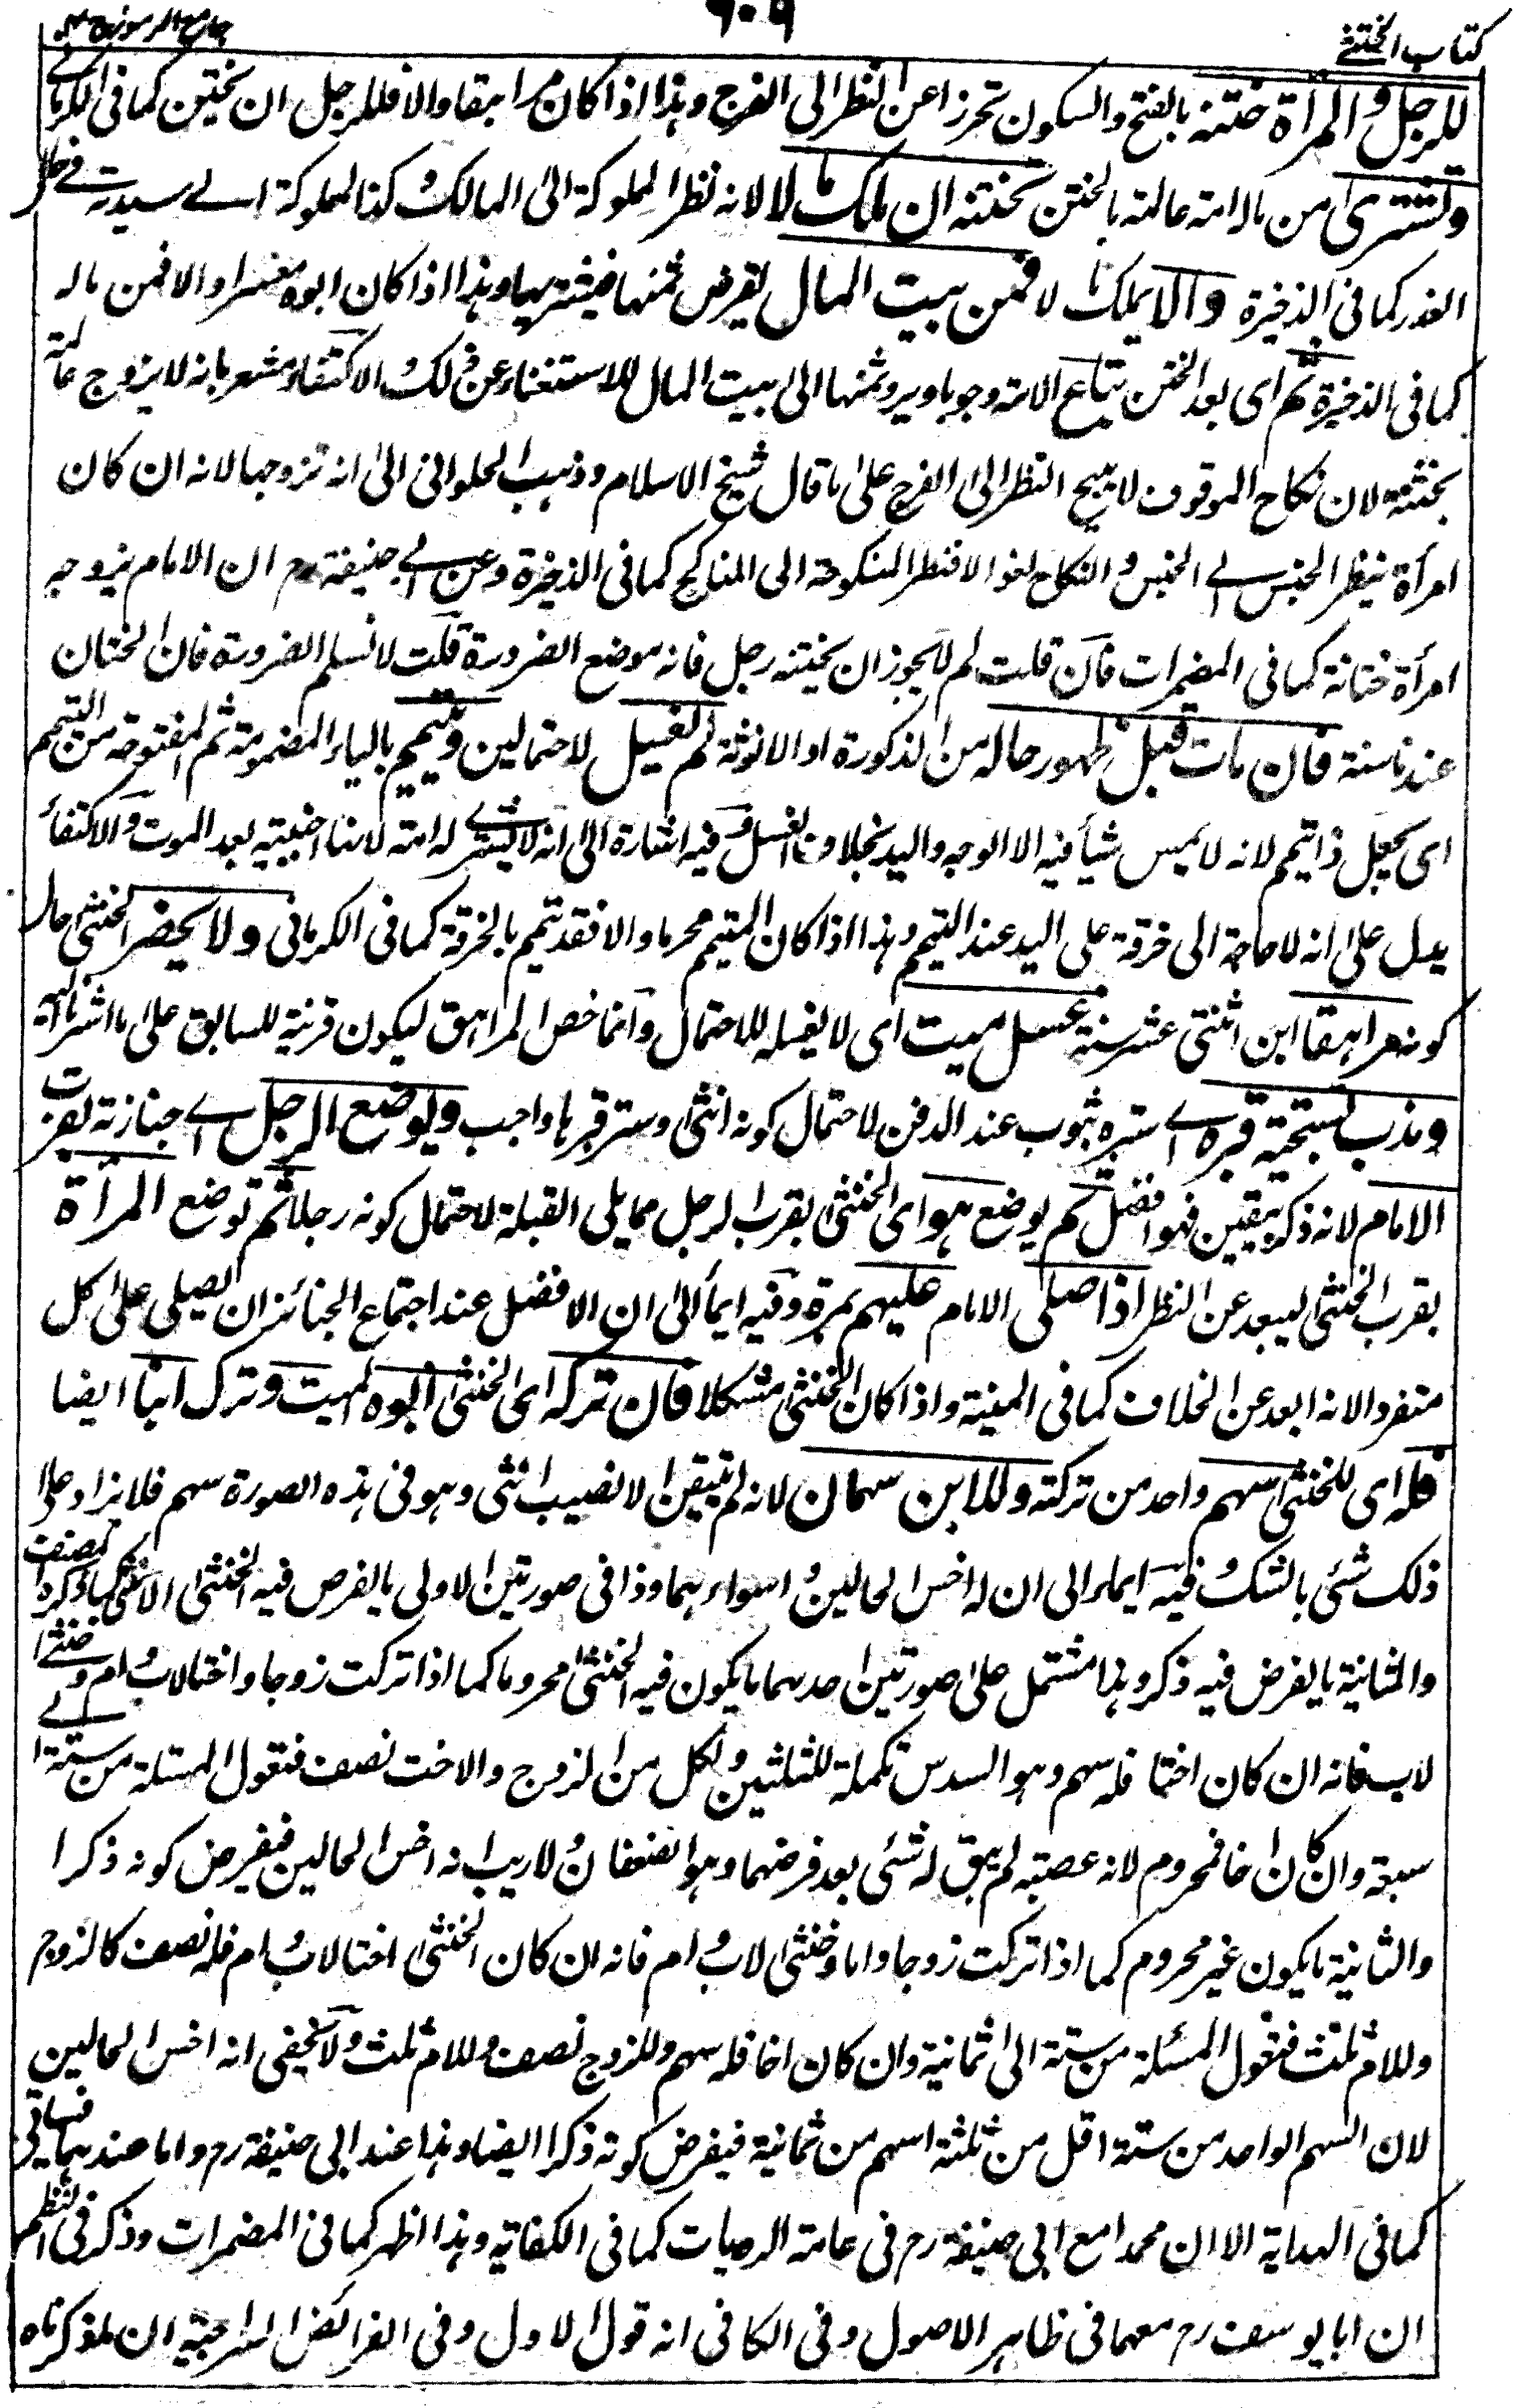 كتاب الخنثے ٦٠٩ جامع الرموز ج ٣
للرجل والمرأة ختنه بالفتح والسكون تحرزا عن النظر الى الفرج وهذا اذا كان مراهقا والا فللرجل ان يختن كما فى الكرمانے
وتشترى من ماله امة عالمة بالختن تختنه ان ملك مالا لانه نظر المملوكة الى المالك وكذا المملوكة الے سيدته فے حال
العذر كما فى الذخيرة والا يملك مالا فمن بيت المال يقرض ثمنها فيشتريها وهذا اذا كان ابوه معسرا والا فمن ماله
كما فى الذخيرة ثم اى بعد الختن تباع الامة وجوبا ويرد ثمنها الى بيت المال للاستغناء عن ذلك والاكتفاء مشعر بانه لا يزوج عالمة
بختنه لان نكاح الموقوف لا يبيح النظر الى الفرج على ما قال شيخ الاسلام وذهب الحلوانى الى انه تزوجها لانه ان كان
امرأة ينظر الجنس الے الجنس والنكاح لغو والا فنظر المنكوحة الى المناكح كما فى الذخيرة وعن ابے حنيفة رح ان الامام يزوجه
امرأة ختانة كما فى المضمرات فان قلت لم لا يجوز ان يختنه رجل فانه موضع الضرورة قلت لا نسلم الضرورة فان الختان
عندنا سنة فان مات قبل ظهور حاله من الذكورة او الانوثة لم يغسل لاحتمالين وييمم بالياء المضمومة ثم المفتوحة من التيمم
اى يجعل ذا تيمم لانه لا يمس شيأ فيه الا الوجه واليد بخلاف الغسل وفيه اشارة الى انه لا يشترے له امة لانها اجنبية بعد الموت والاكتفاء
يدل على انه لا حاجة الى خرقة على اليد عند التيمم وهذا اذا كان المتيمم محرما والا فقد تيمم بالخرقة كما فى الكرمانى ولا يحضر الخنثى حال
كونه مراهقا ابن اثنتى عشر سنة غسل ميت اى لا يغسله للاحتمال وانما خص المراهق ليكون قرينة للسابق على ما اشرنا اليه
وندب تسجية قبره اے ستره بثوب عند الدفن لاحتمال كونه انثى وستر قبرها واجب ويوضع الرجل اے جنازته بقرب
الامام لانه ذكر بيقين فهو افضل ثم يوضع هو اى الخنثى بقرب الرجل مما يلى القبلة لاحتمال كونه رجلا ثم توضع المرأة
بقرب الخنثى ليبعد عن النظر اذا صلى الامام عليهم بمرة وفيه ايمأ الى ان الافضل عند اجتماع الجنائز ان يصلى على كل
منفردا لانه ابعد عن الخلاف كما فى المنية واذا كان الخنثى مشكلا فان تركه اى الخنثى ابوه الميت وترك ابنا ايضا
فله اى للخنثى سهم واحد من تركته وللابن سهمان لانه لم يتيقن الا نصيب انثى وهو فى هذه الصورة سهم فلا يزاد على
ذلك شئى بالشك وفيه ايماء الى ان له اخس الحالين اسواءهما وذا فى صورتين الاولى ما يفرض فيه الخنثى الانثى كما ذكره المصنف
والثانية ما يفرض فيه ذكر وهذا مشتمل على صورتين احدهما ما يكون فيه الخنثى محروما كما اذا تركت زوجا واختا لاب وام وخنثے
لاب فانه ان كان اختا فله سهم وهو السدس تكملة للثلثين ولكل من الزوج والاخت نصف فتعول المسئلة من ستة الے
سبعة وان كان اخا فمحروم لانه عصبة لم يبق له شئى بعد فرضهما وهو النصفان ولا ريب انه اخس الحالين فيفرض كونه ذكرا
والثانية ما يكون غير محروم كما اذا تركت زوجا واما وخنثى لاب وام فانه ان كان الخنثى اختا لاب وام فله نصف كالزوج
وللام ثلث فتعول المسئلة من ستة الى ثمانية وان كان اخا فله سهم وللزوج نصف وللام ثلث ولا يخفى انه اخس الحالين
لان السهم الواحد من ستة اقل من ثلثة اسهم من ثمانية فيفرض كونه ذكرا ايضا وهذا عند ابى حنيفة رح واما عندهما فسياتى
كما فى الهداية الا ان محمدا مع ابى حنيفة رح فى عامة الروايات كما فى الكفاية وهذا اظهر كما فى المضمرات وذكر فى النظم
ان ابا يوسف رح معهما فى ظاهر الاصول وفى الكافى انه قول الاول وفى الفرائض السراجية ان ما ذكرناه